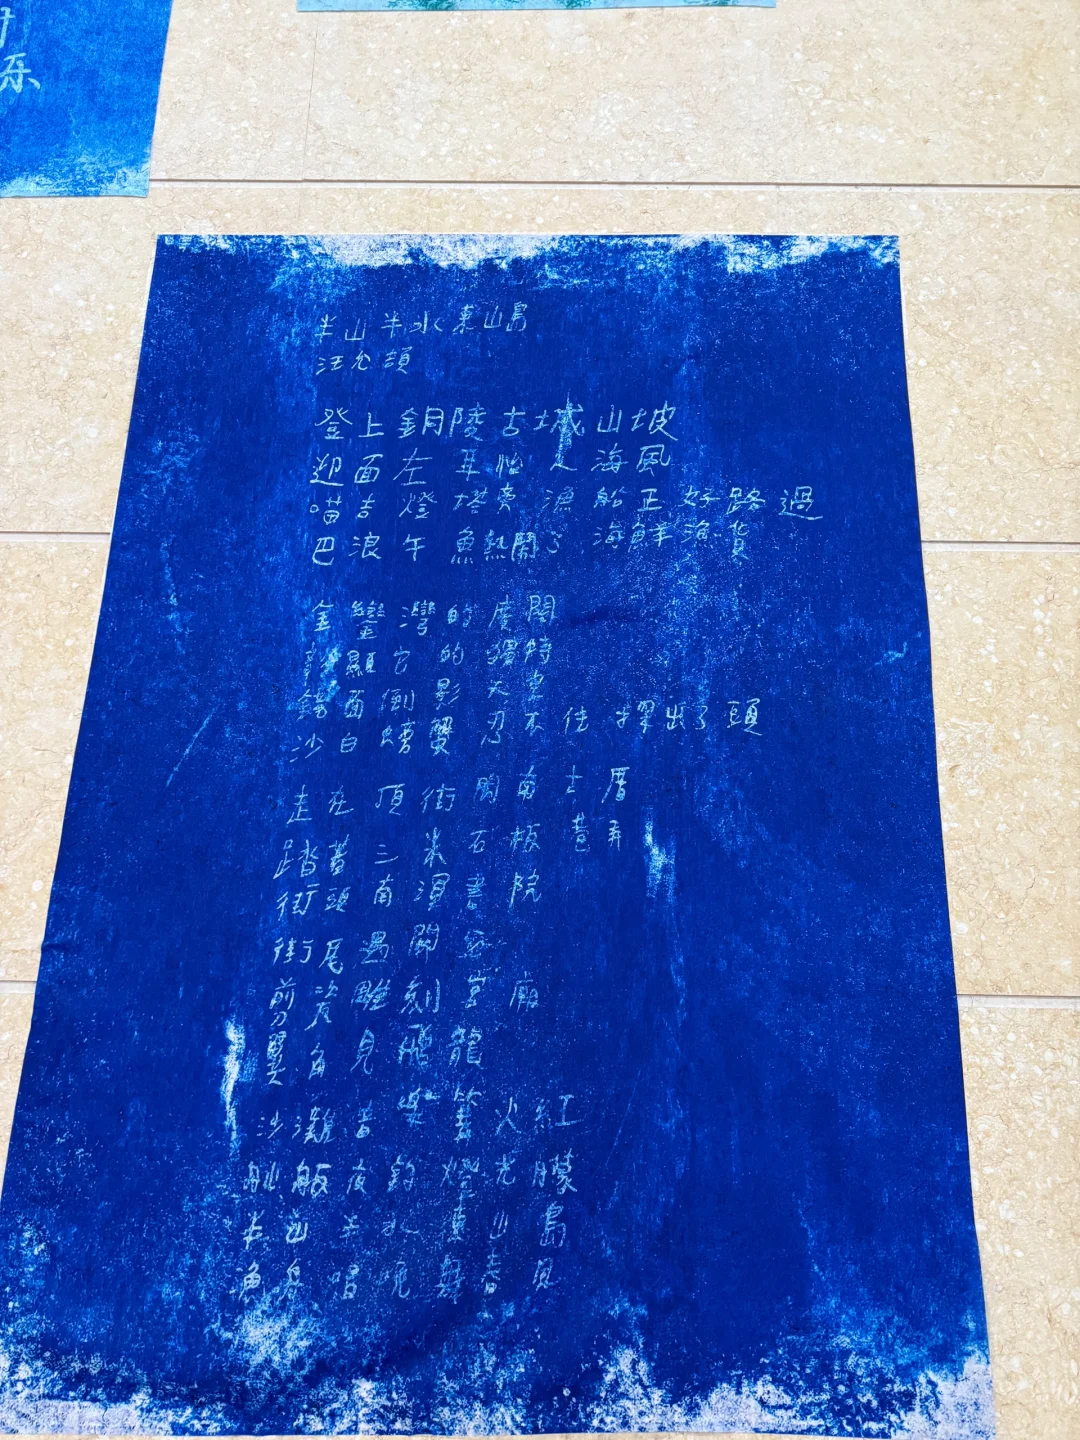 半山半水東山島
汪允頡
登上銅陵古城山坡
迎面左耳怕人海風
喵吉燈塔旁漁船正好路過
巴浪午魚熱鬧了海鮮漁貨
金鑾灣的廣闊
彰顯它的獨特
鏡面倒影天
沙白螃蟹忍不住探出了頭
走在頂街閩南古厝
踏蓋三米石板巷弄
街頭南溟書院
街尾過關帝宮廟
剪瓷雕刻
翼角見飛龍
沙灘 篝火紅
舢舨夜釣燈光朦
半山半水東山島
漁舟唱晚舞春風
乐